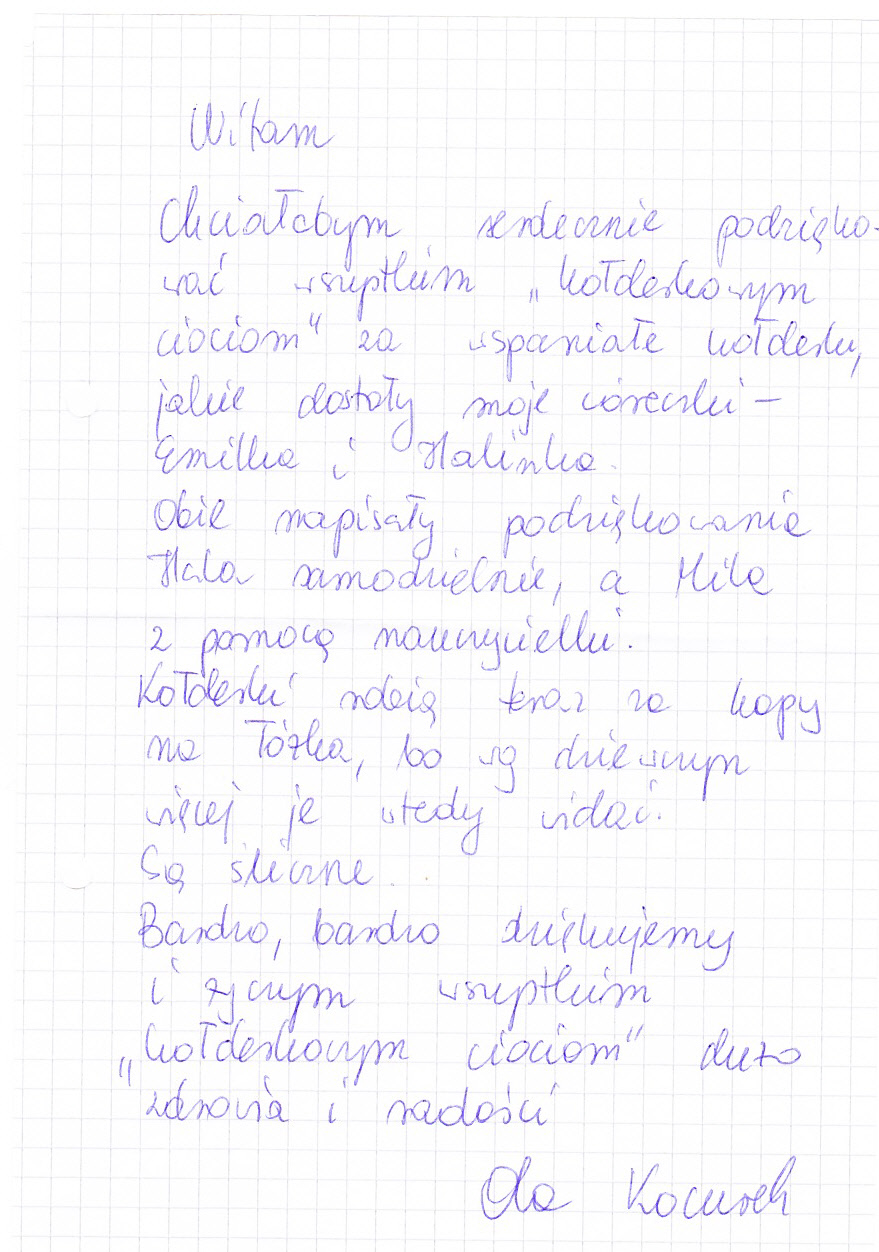 Witam
Chciałabym serdecznie podzięko-
wać wszystkim „kołderkowym
ciociom" za wspaniałe kołderki,
jakie dostały moje córeczki -
Emilka i Halinka.
Obie napisały podziękowania
Hala samodzielnie, a Mila
z pomocą nauczycielki.
Kołderki robią teraz za kapy
na łóżka, bo wg dziewczyn
więcej je wtedy widać.
Są śliczne.
Bardzo, bardzo dziękujemy
i życzym wszystkim
„kołderkowym ciociom" dużo
zdrowia i radości
Ola Kocurek